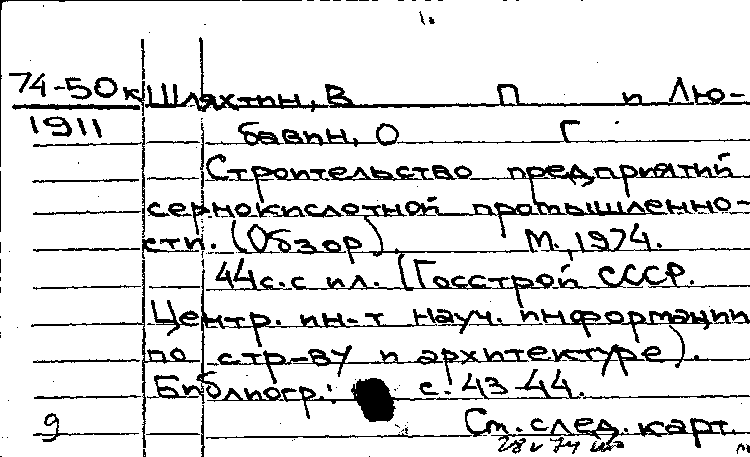 1.
74-50к Шляхтин, В П и Лю-
1911 бавин, О Г
Строительство предприятий
сернокислотной промышленно-
сти. (Обзор). М., 1974.
44с. с ил. (Госстрой СССР.
Центр. ин-т науч. информации
по стр-ву и архитектуре).
Библиогр.: с. 43-44.
9 См. след. карт.